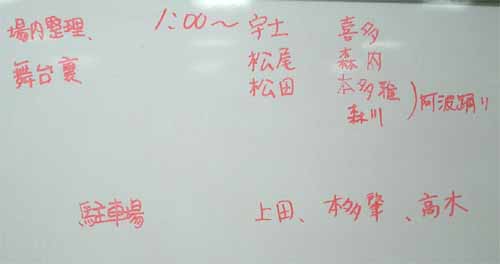 場内整理、 1:00〜 宇士 喜多
舞台裏 松尾 森内
松田 本多雅
森川 )阿波踊り
駐車場 上田、本多肇、高木